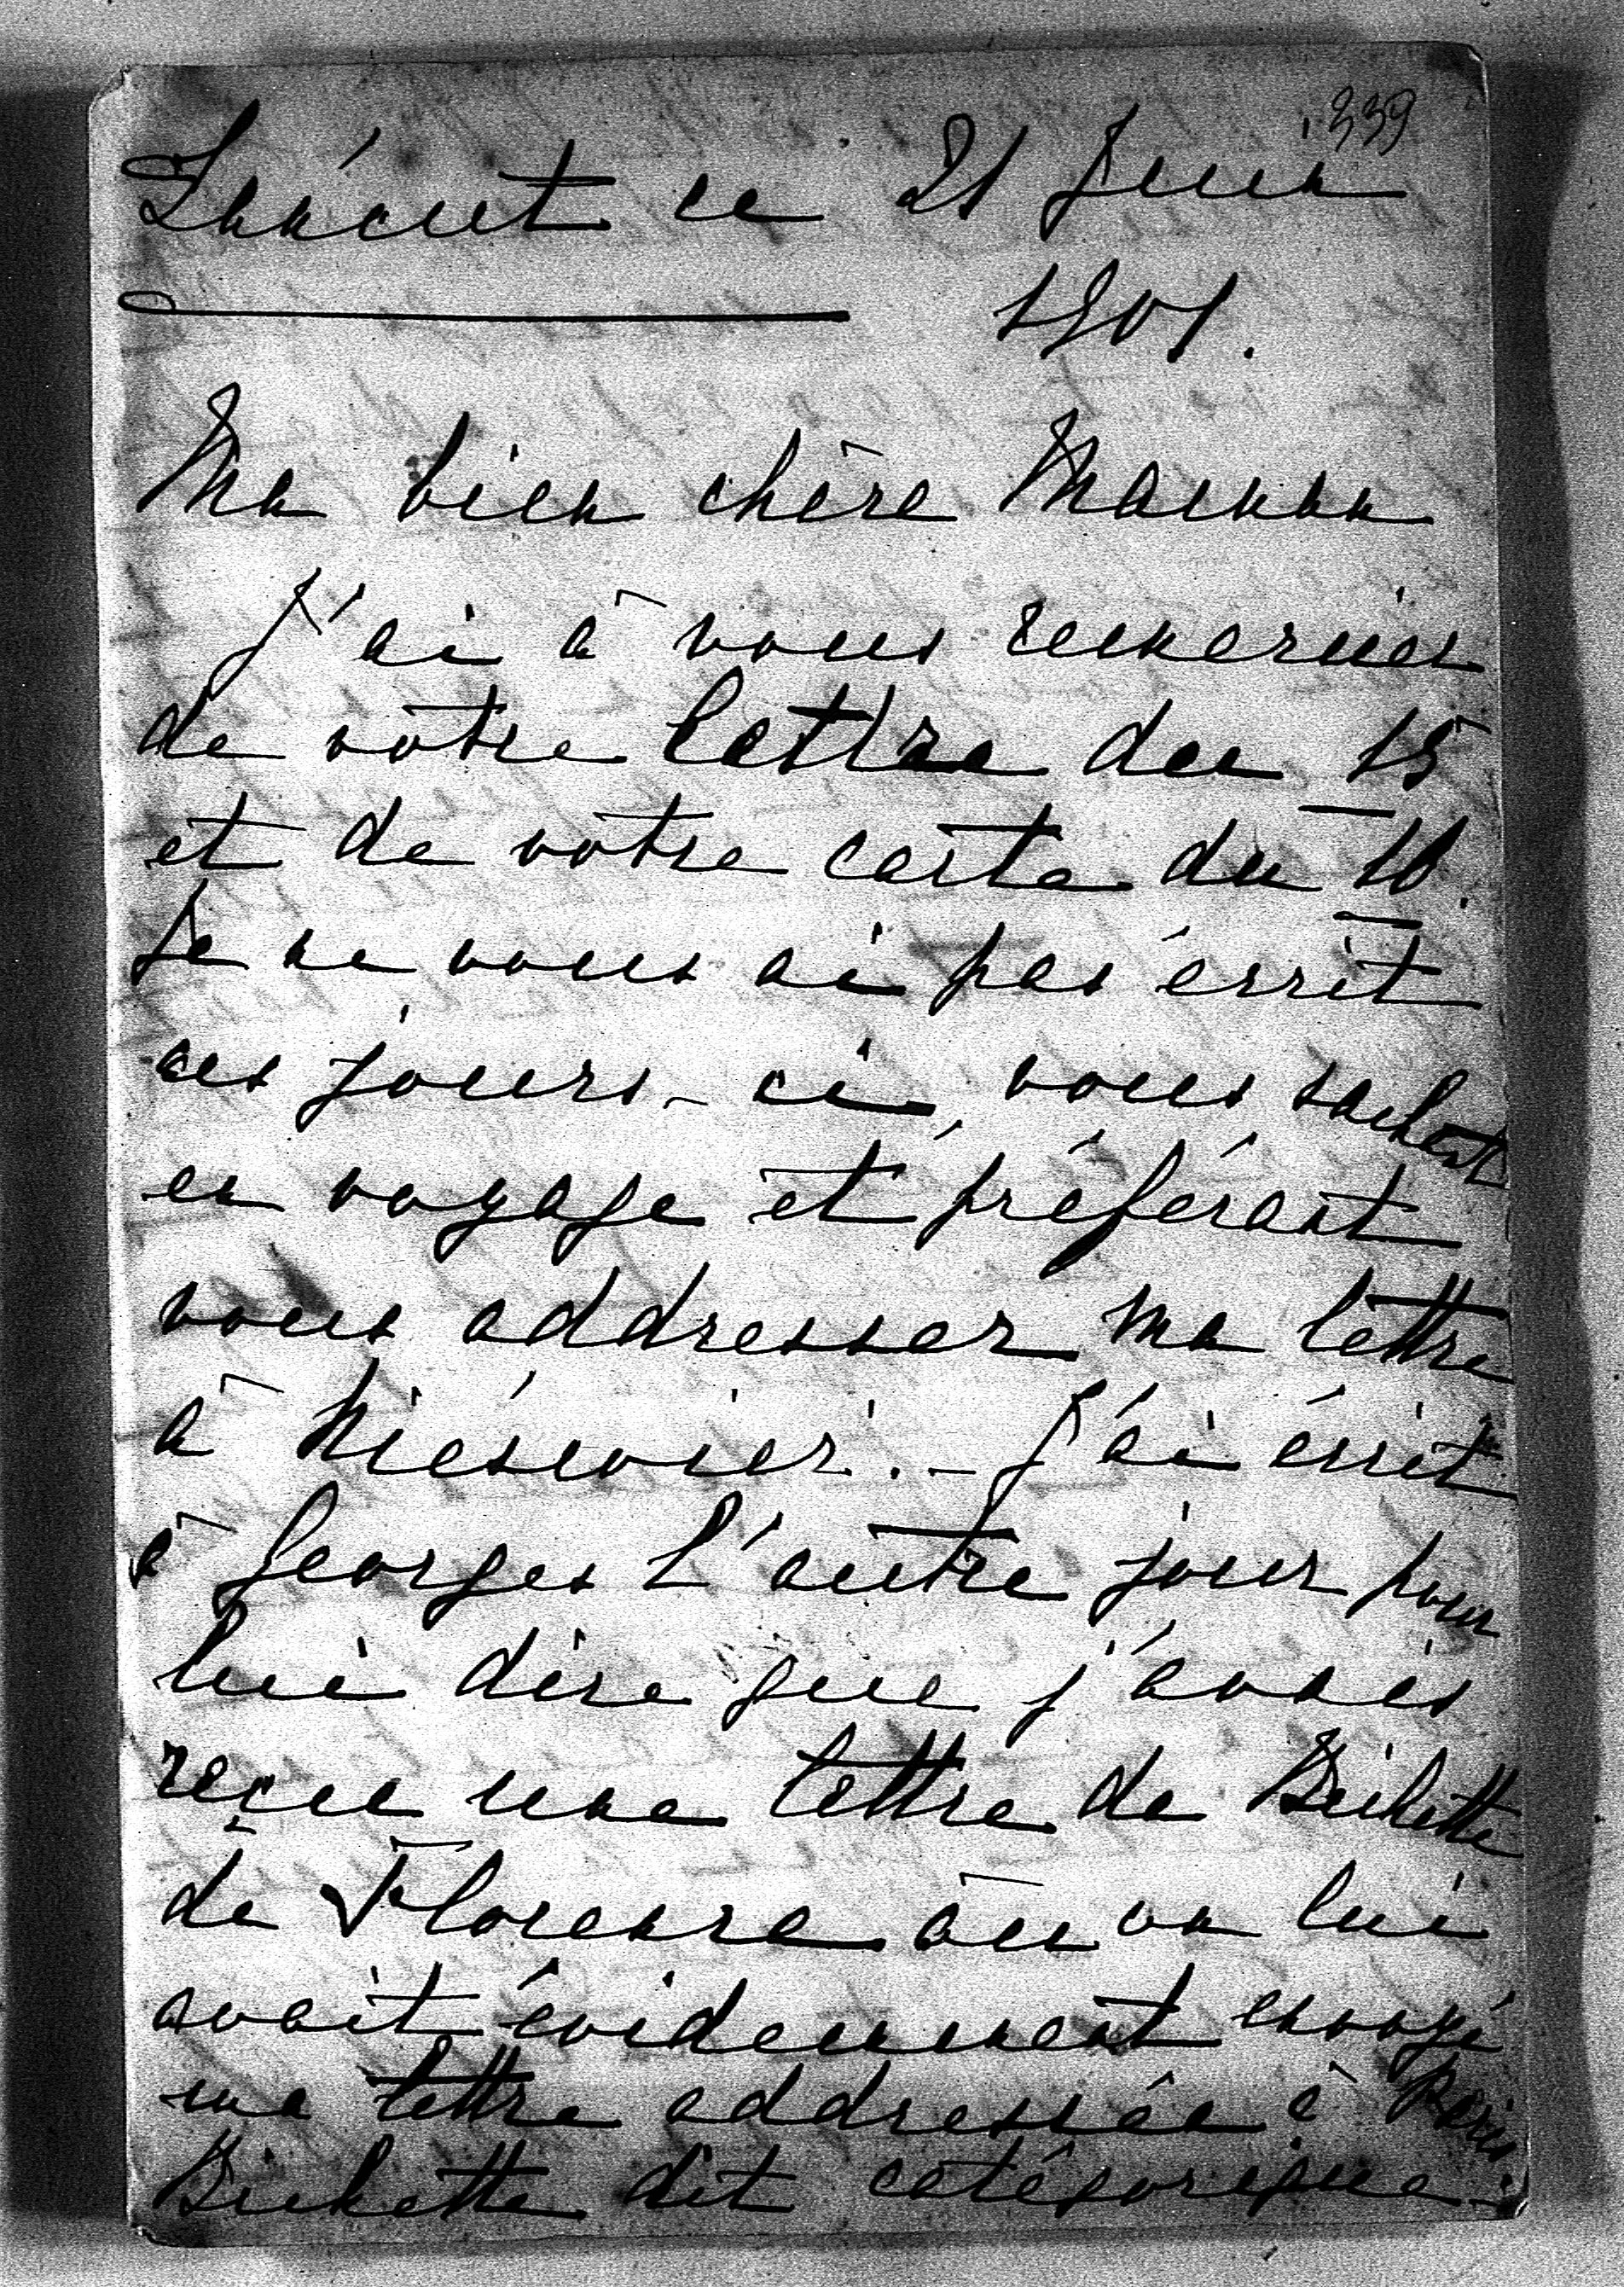 339
Łańcut ce 21 Juin
1901.
Ma bien chère Maman
J'ai à vous remercier
de votre lettre du 15
et de votre carte du 18.
Je ne vous ai pas écrit
ces jours-ci, vous sachant
en voyage et préférant
vous addresser ma lettre
à Nieświer. - J'ai écrit
à Georges l'autre jour pour
lui dire que j'avais
reçue une lettre de Bichette
de Florence où on lui
avait évidemment envoyé
ma lettre addressée à Paris
Bichette dit catégorique-